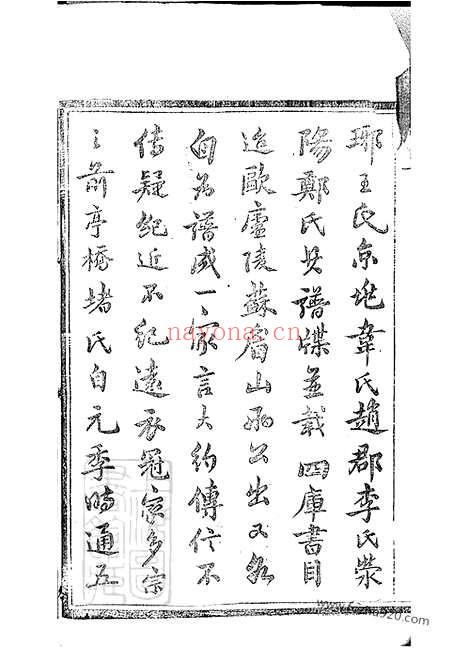 瑯王氏京兆韋氏趙郡李氏滎
陽鄭氏其譜牒並載四庫書目
迨歐廬陵蘇眉山兩公出又各
自為譜成一家言大約傳信不
傳疑紀近不紀遠吾冠家多宗
之前亭橋堵氏自元季時通五
nayona.cn